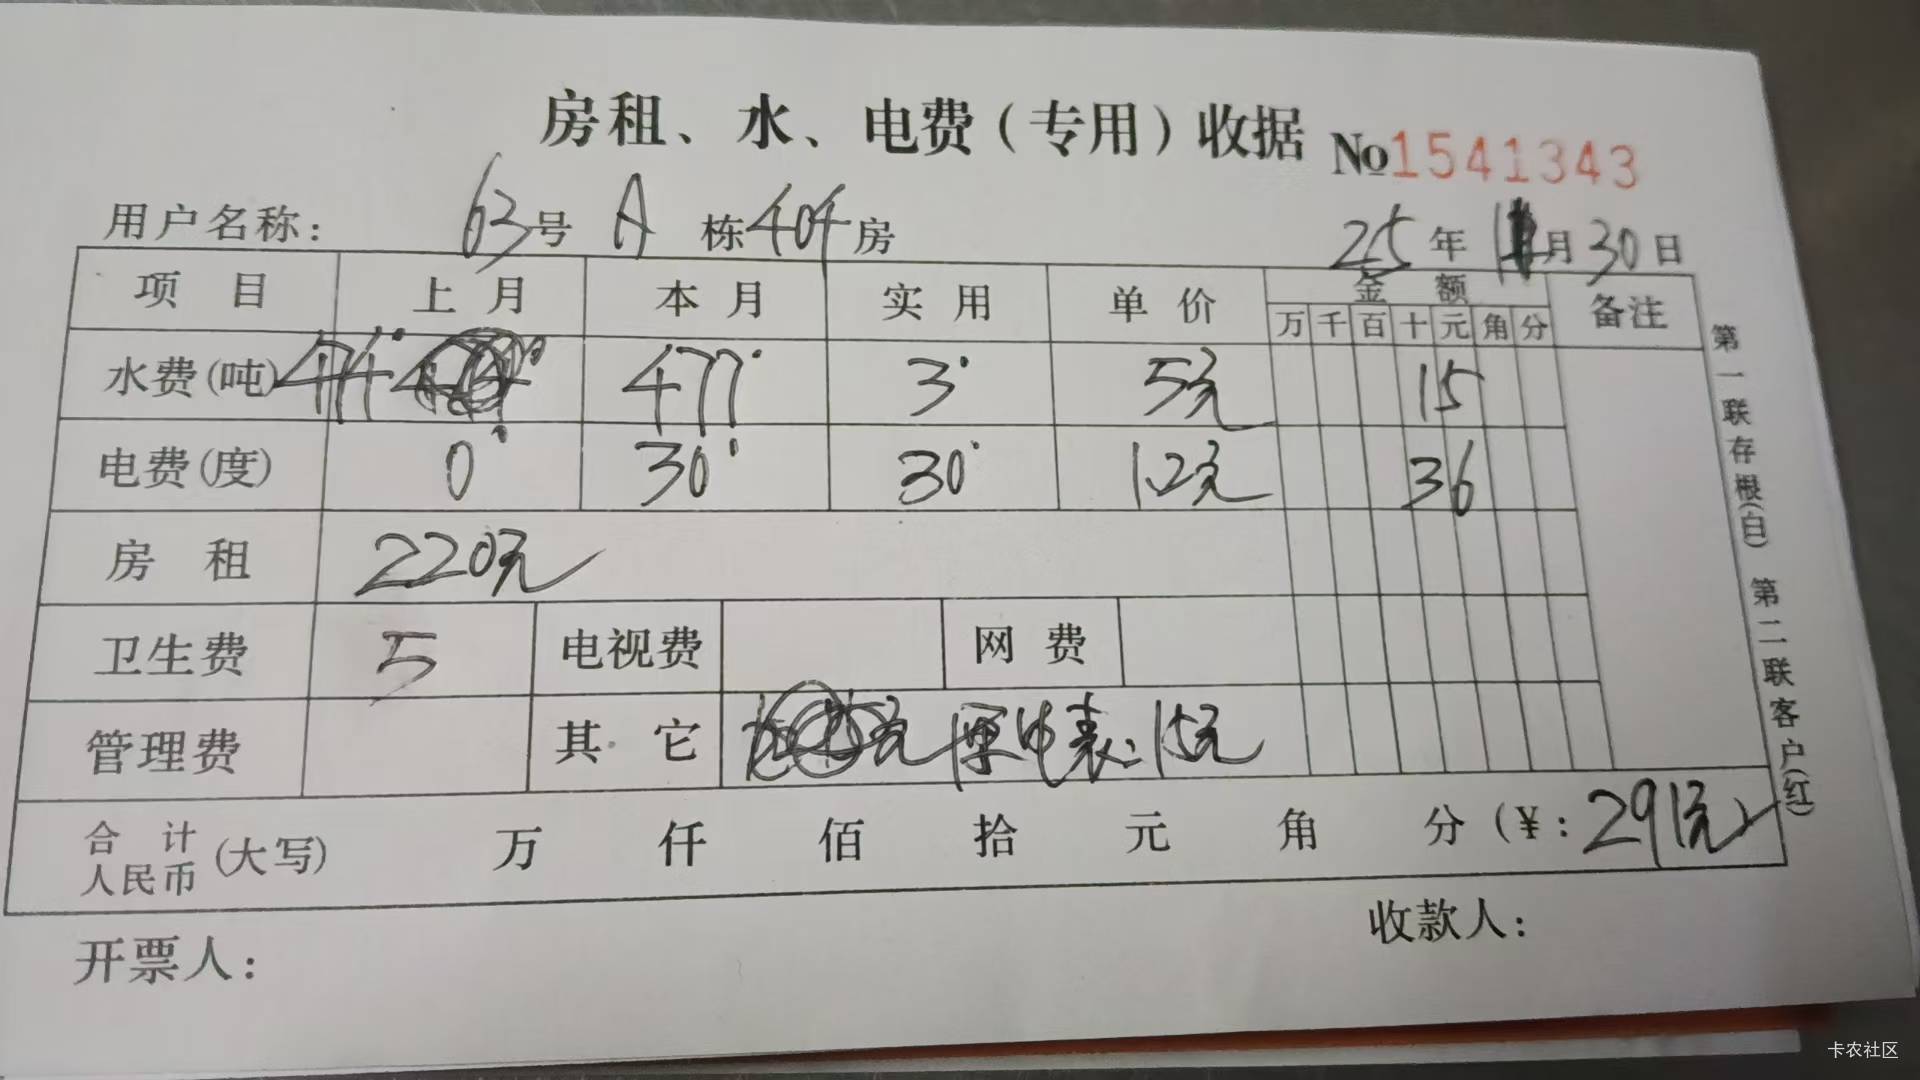 房租、水、电费(专用)收据 №1541343
用户名称: 63号 A 栋404房 25年11月30日
项目 上月 本月 实用 单价 金额 备注
万 千 百 十 元 角 分
水费(吨) 474° 477° 3° 5元 15
电费(度) 0° 30° 30° 1.2元 36
房租 220元
卫生费 5 电视费 网费
管理费 其它 原电表:15元
合计人民币(大写) 万 仟 佰 拾 元 角 分(¥:291元)
开票人: 收款人:
第一联存根(白) 第二联客户(红)
卡农社区